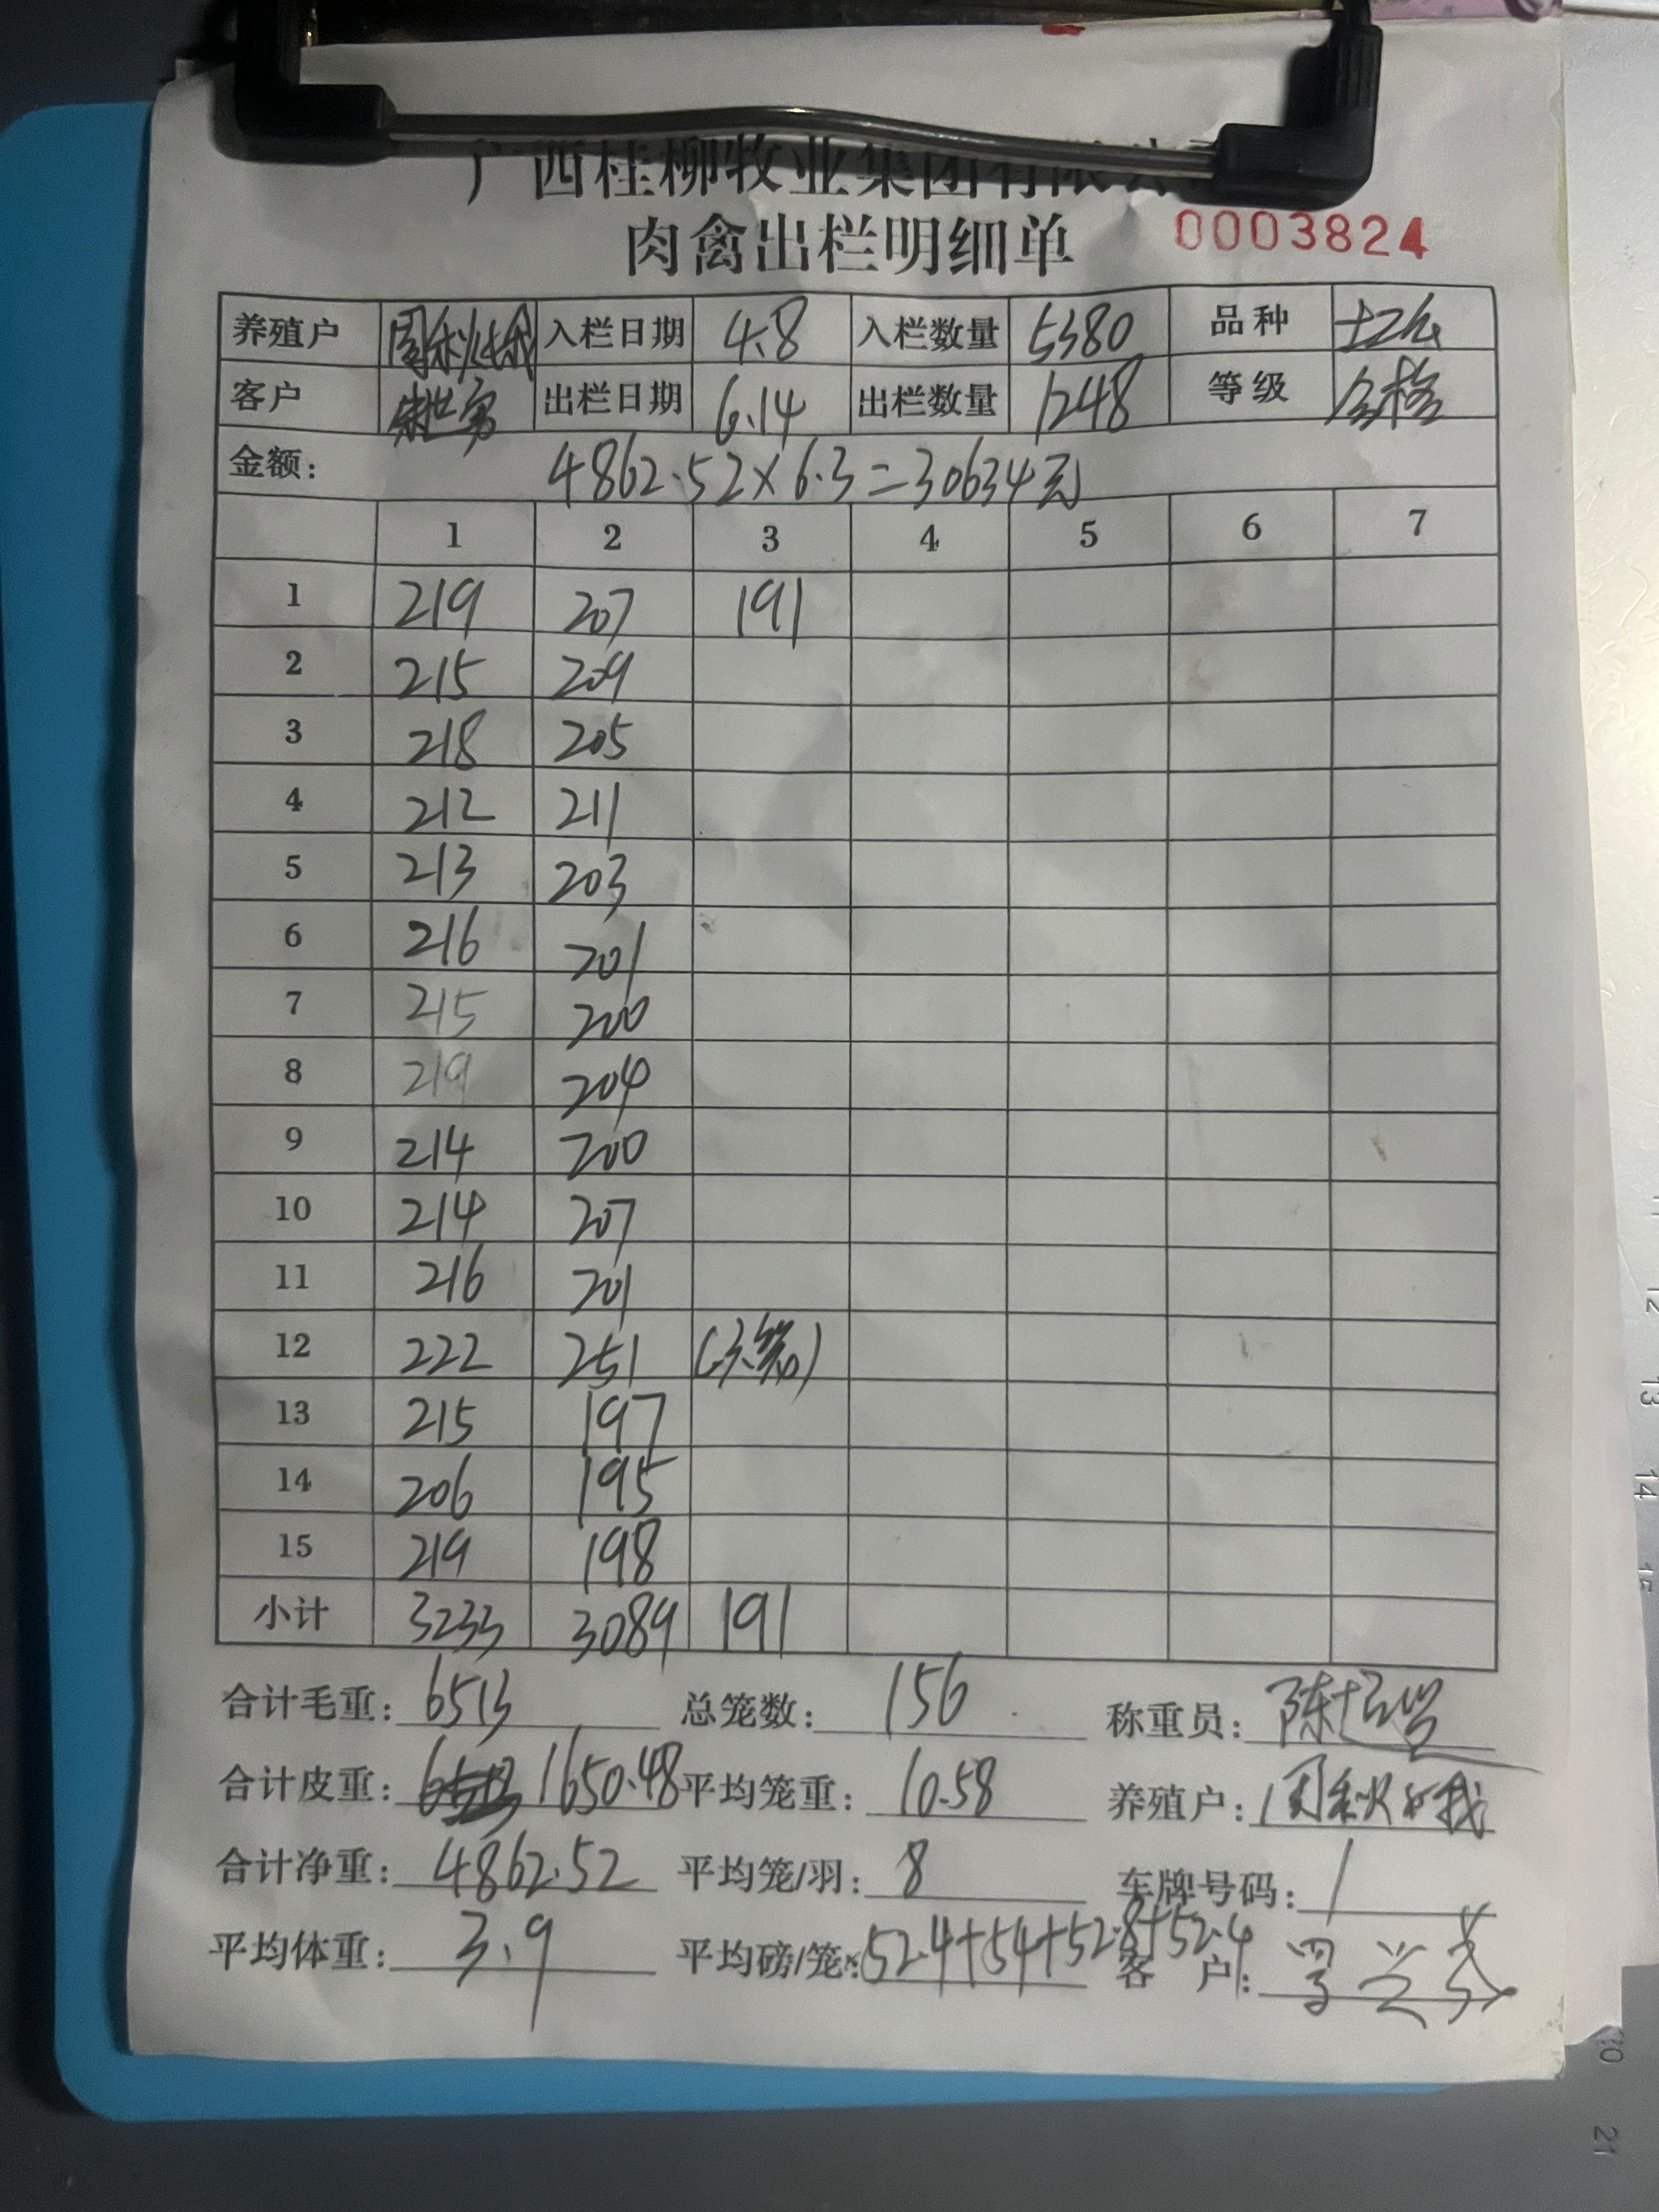 广西桂柳牧业集团有限公
肉禽出栏明细单 0003824
养殖户 周秋 入栏日期 4.8 入栏数量 5380 品种 土2
客户 出栏日期 6.14 出栏数量 1248 等级 合格
金额: 4862.52×6.3=30634元
1 2 3 4 5 6 7
1 219 207 191
2 215 209
3 218 205
4 212 211
5 213 203
6 216 201
7 215 200
8 219 204
9 214 200
10 214 207
11 216 201
12 222 251 (6笼)
13 215 197
14 206 195
15 219 198
小计 3233 3089 191
合计毛重: 6513 总笼数: 156 称重员: 陈
合计皮重: 1650.48 平均笼重: 10.58 养殖户: 周秋
合计净重: 4862.52 平均笼/羽: 8 车牌号码: /
平均体重: 3.9 平均磅/笼: 52.4+54+52.8+52.4 客户: